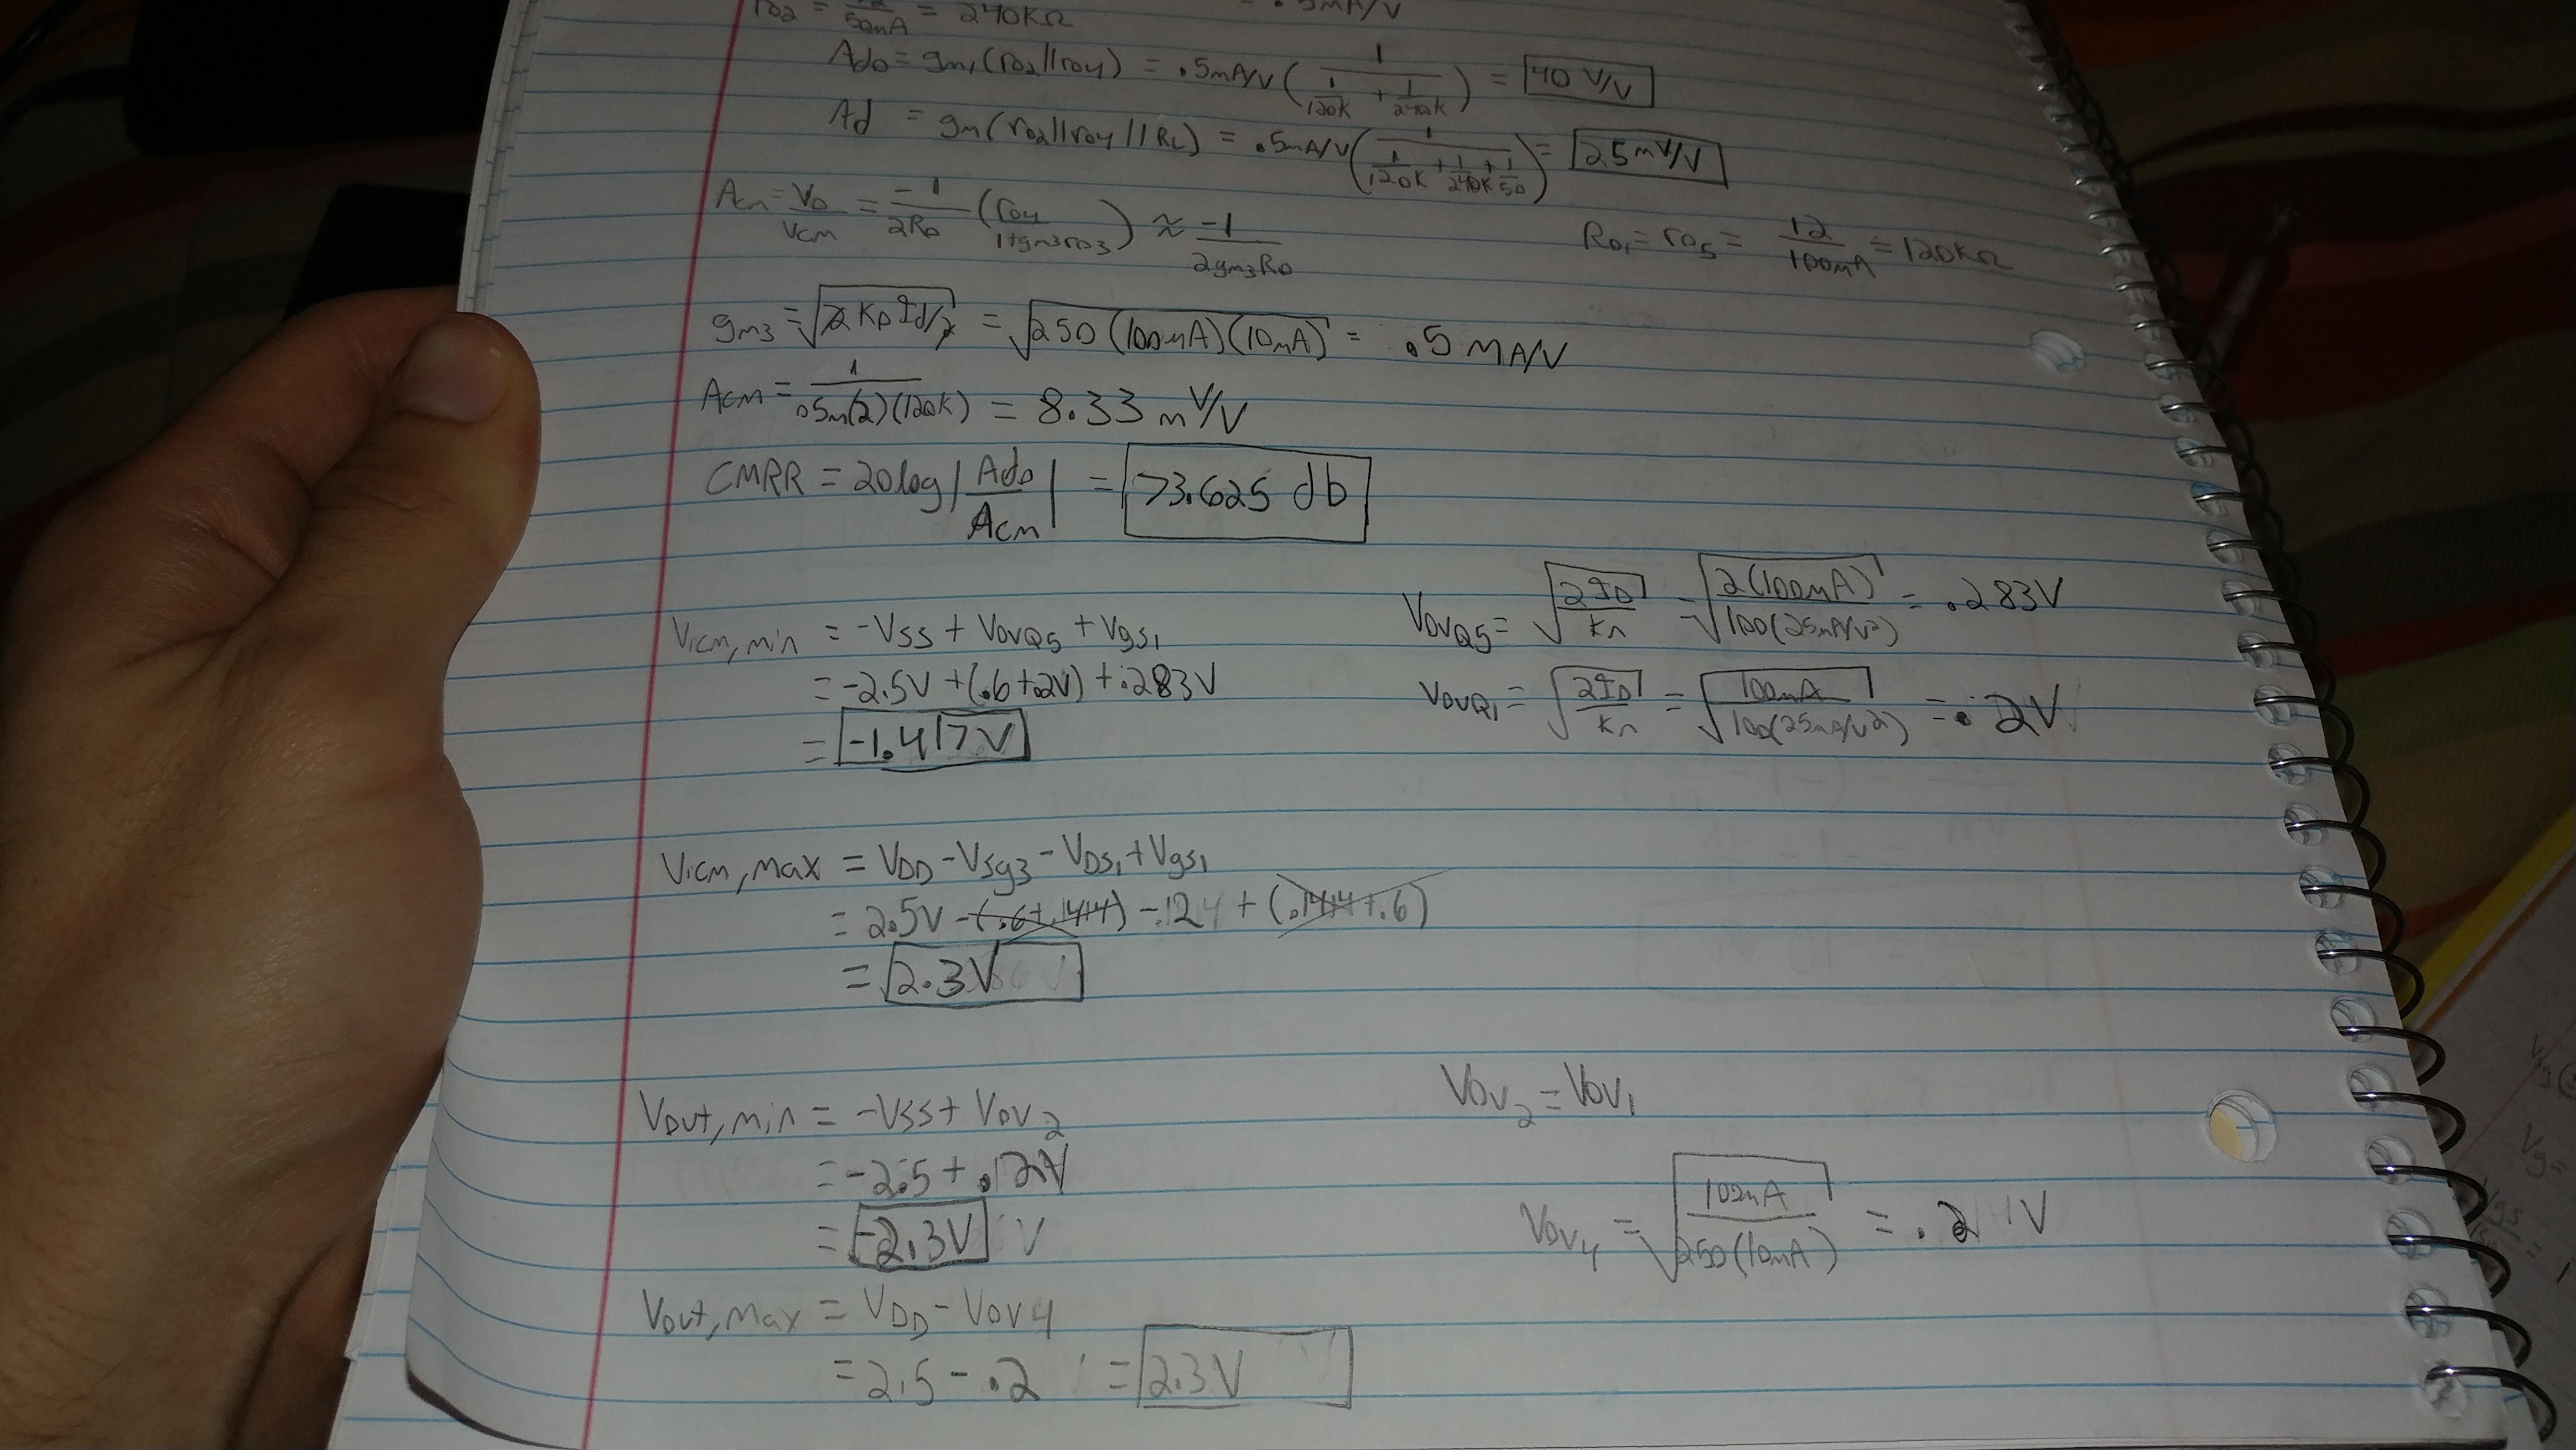 ro2 = 12/50mA = 240KΩ = .5mA/V
Ado = gm1(ro2||ro4) = .5mA/V(1/(1/120K + 1/240K)) = 40 V/V
Ad = gm(ro2||ro4||RL) = .5mA/V(1/(1/120K + 1/240K + 1/50)) = 25mV/V
Acm = Vo/Vcm = -1/2Ro (ro4/1+gm3ro3) ≈ -1/2gm3Ro
Ro1 = ro5 = 12/100mA = 120KΩ
gm3 = √2KpId/2 = √250(100mA)(10mA) = .5 mA/V
Acm = 1/.5m(2)(120K) = 8.33 mV/V
CMRR = 20log|Ado/Acm| = 73.625 db
VovQ5 = √2ID/Kn = √2(100mA)/100(25mA/V²) = .283V
Vicm,min = -VSS + VovQ5 + Vgs1
= -2.5V + (.6+.2V) + .283V
VovQ1 = √2ID/Kn = √100mA/100(25mA/V²) = .2V
= -1.417V
Vicm,max = VDD - Vsg3 - VDS1 + Vgs1
= 2.5V - (.6+.1414) - .124 + (.1414+.6)
= 2.3V
Vov2 = Vov1
Vout,min = -VSS + Vov2
= -2.5 + .12V
Vov4 = √100mA/250(10mA) = .2 V
= -2.3V V
Vout,max = VDD - Vov4
= 2.5 - .2 = 2.3V